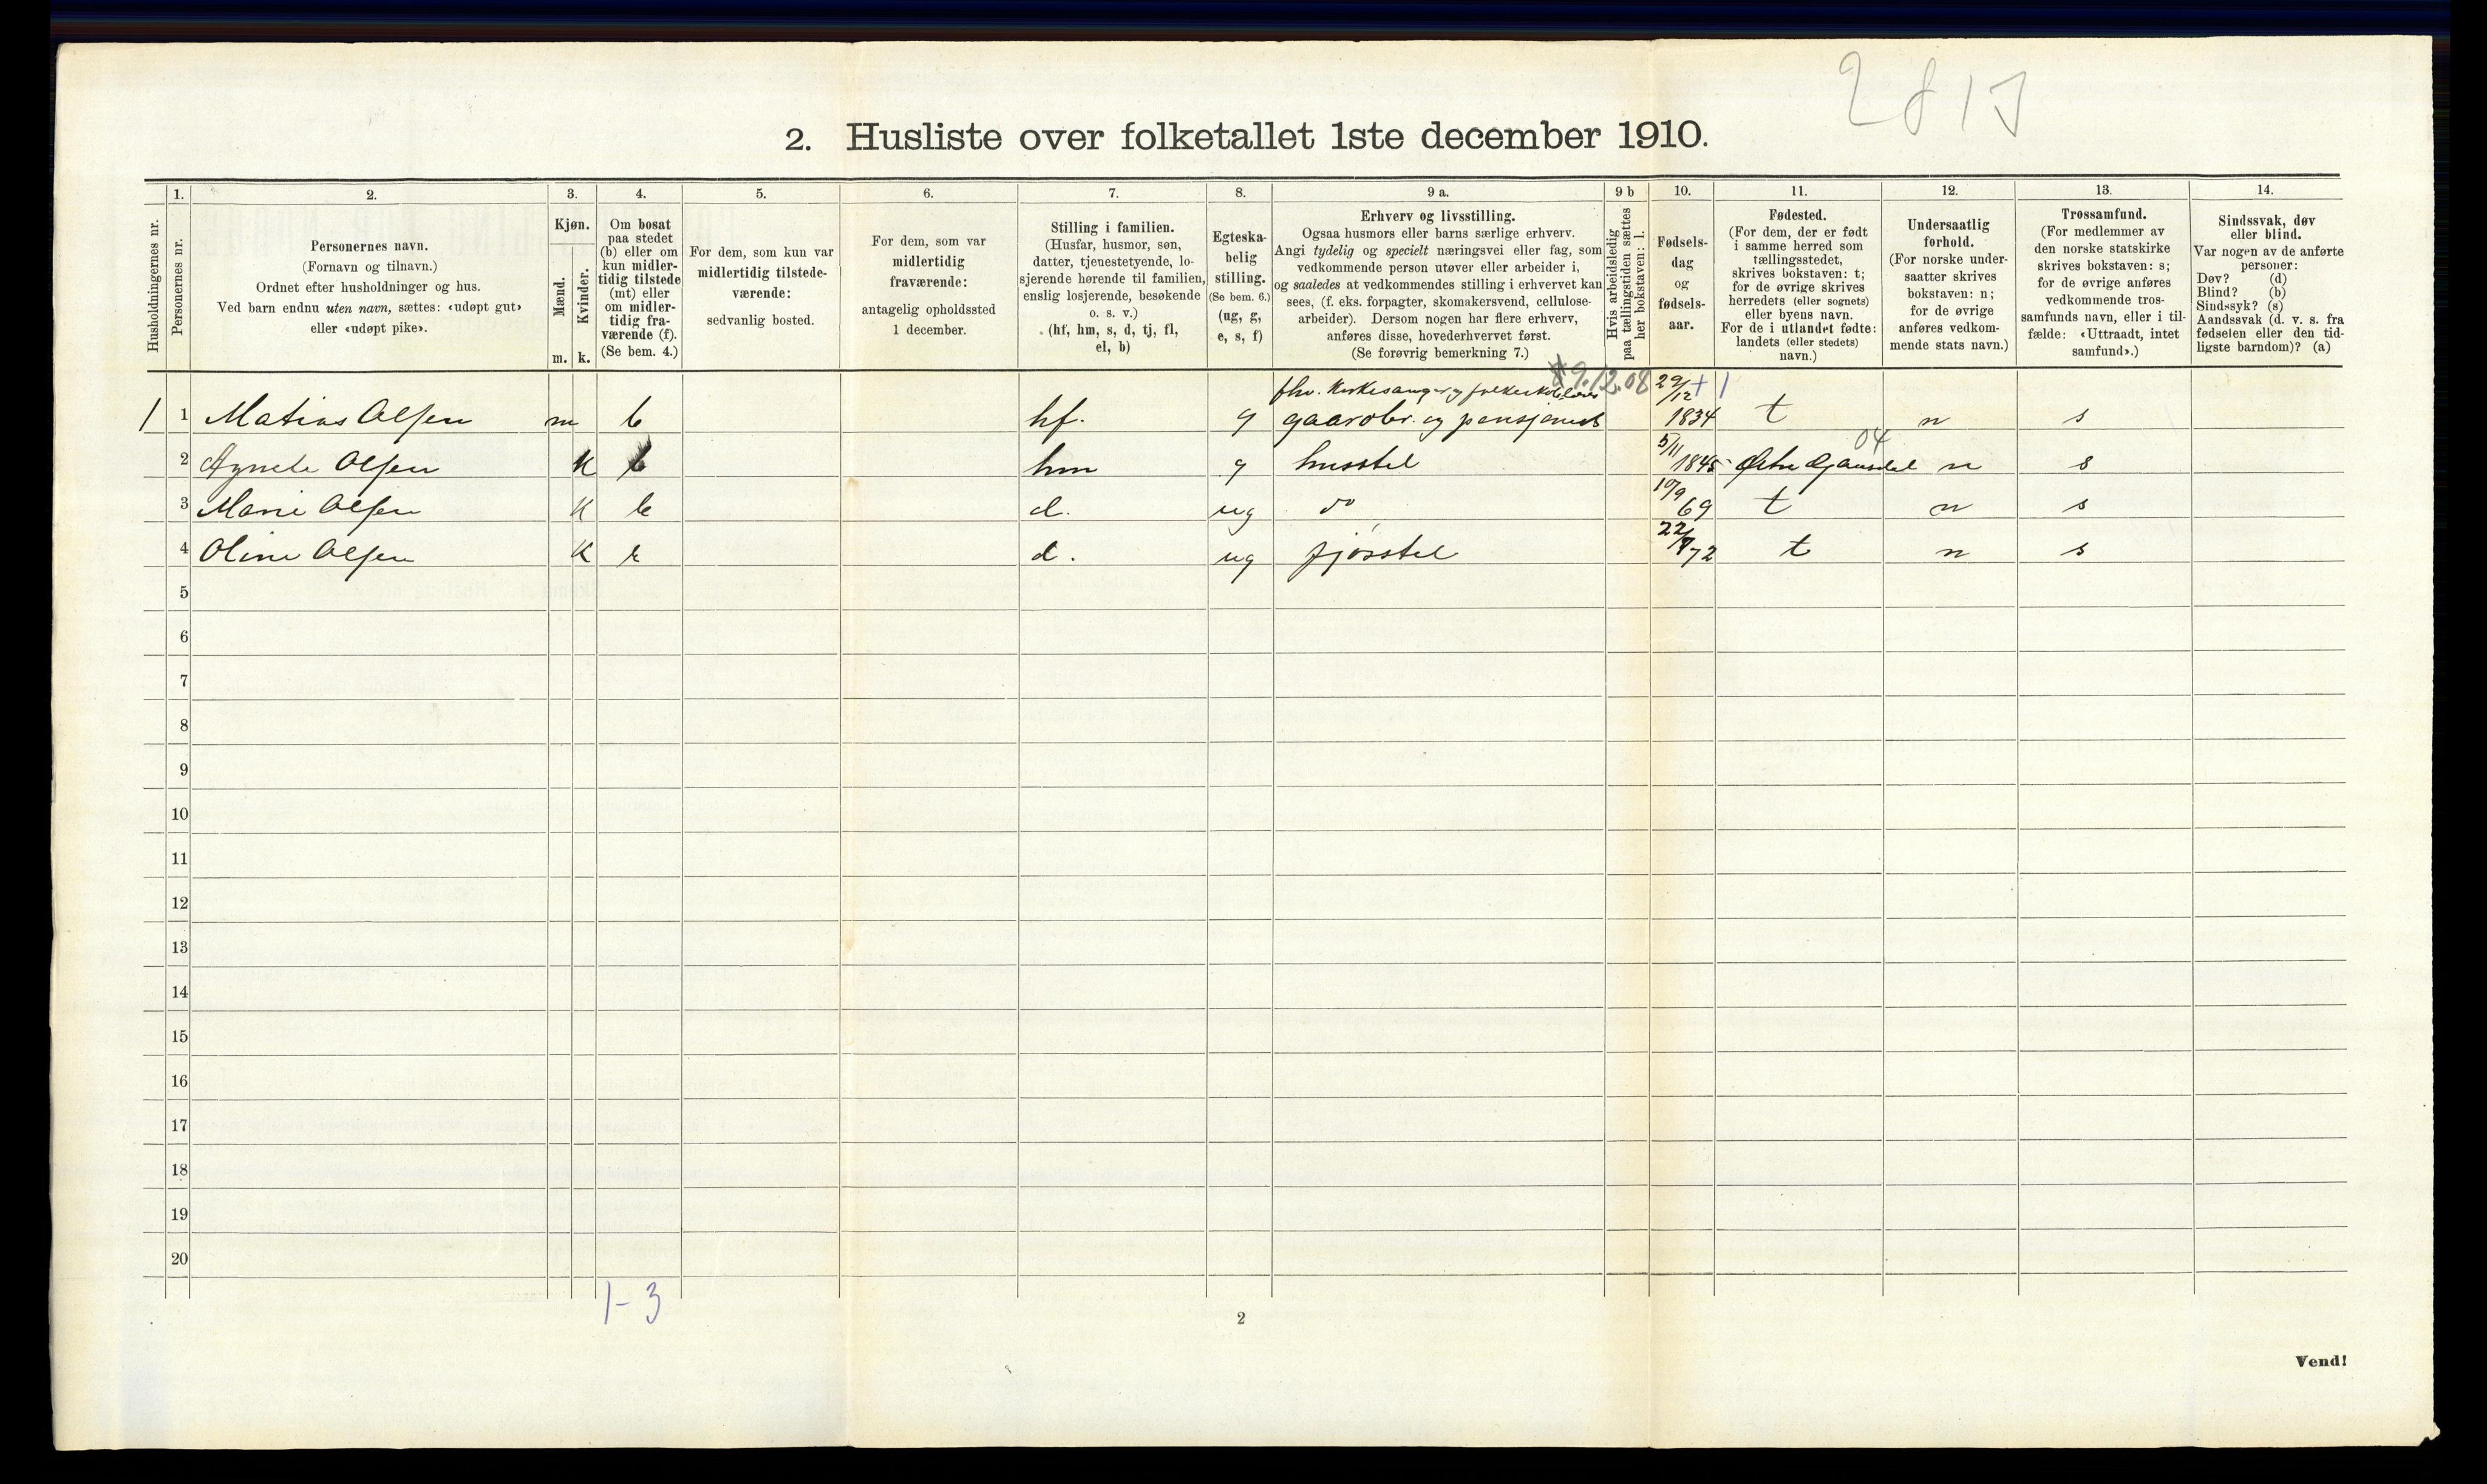 2813
2. Husliste over folketallet 1ste december 1910.
Husholdningernes nr.
1.
Personernes nr.
2.
Personernes navn.
(Fornavn og tilnavn.)
Ordnet efter husholdninger og hus.
Ved barn endnu uten navn, sættes: «udøpt gut»
eller «udøpt pike».
3.
Kjøn.
Mænd.
Kvinder.
m. k.
4.
Om bosat
paa stedet
(b) eller om
kun midler-
tidig tilstede
(mt) eller
om midler-
tidig fra-
værende (f).
(Se bem. 4.)
5.
For dem, som kun var
midlertidig tilstede-
værende:
sedvanlig bosted.
6.
For dem, som var
midlertidig
fraværende:
antagelig opholdssted
1 december.
7.
Stilling i familien.
(Husfar, husmor, søn,
datter, tjenestetyende, lo-
sjerende hørende til familien,
enslig losjerende, besøkende
o. s. v.)
(hf, hm, s, d, tj, fl,
el, b)
8.
Egteska-
belig
stilling.
(Se bem. 6.)
(ug, g,
e, s, f)
9 a.
Erhverv og livsstilling.
Ogsaa husmors eller barns særlige erhverv.
Angi tydelig og specielt næringsvei eller fag, som
vedkommende person utøver eller arbeider i,
og saaledes at vedkommendes stilling i erhvervet kan
sees, (f. eks. forpagter, skomakersvend, cellulose-
arbeider). Dersom nogen har flere erhverv,
anføres disse, hovederhvervet først.
(Se forøvrig bemerkning 7.)
9 b
Hvis arbeidsledig
paa tællingstiden sættes
her bokstaven: l.
10.
Fødsels-
dag
og
fødsels-
aar.
11.
Fødested.
(For dem, der er født
i samme herred som
tællingsstedet,
skrives bokstaven: t;
for de øvrige skrives
herredets (eller sognets)
eller byens navn.
For de i utlandet fødte:
landets (eller stedets)
navn.)
12.
Undersaatlig
forhold.
(For norske under-
saatter skrives
bokstaven: n;
for de øvrige
anføres vedkom-
mende stats navn.)
13.
Trossamfund.
(For medlemmer av
den norske statskirke
skrives bokstaven: s;
for de øvrige anføres
vedkommende tros-
samfunds navn, eller i til-
fælde: «Uttraadt, intet
samfund».)
14.
Sindssvak, døv
eller blind.
Var nogen av de anførte
personer:
Døv? (d)
Blind? (b)
Sindssyk? (s)
Aandssvak (d. v. s. fra
fødselen eller den tid-
ligste barndom)? (a)
9.12.08
fhv. Kirkesanger og
29/12 + 1
1 1 Matias Olsen m b hf. g gaardbr. og pensjonist 1834 t n s
04
2 Agnete Olsen k b hm g husstel 5/11 1845 Østre Gausdal n s
3 Marie Olsen k b d. ug do 10/9 69 t n s
4 Oline Olsen k b d. ug fjøsstel 22/ 72 t n s
5
6
7
8
9
10
11
12
13
14
15
16
17
18
19
20
1-3
2
Vend!